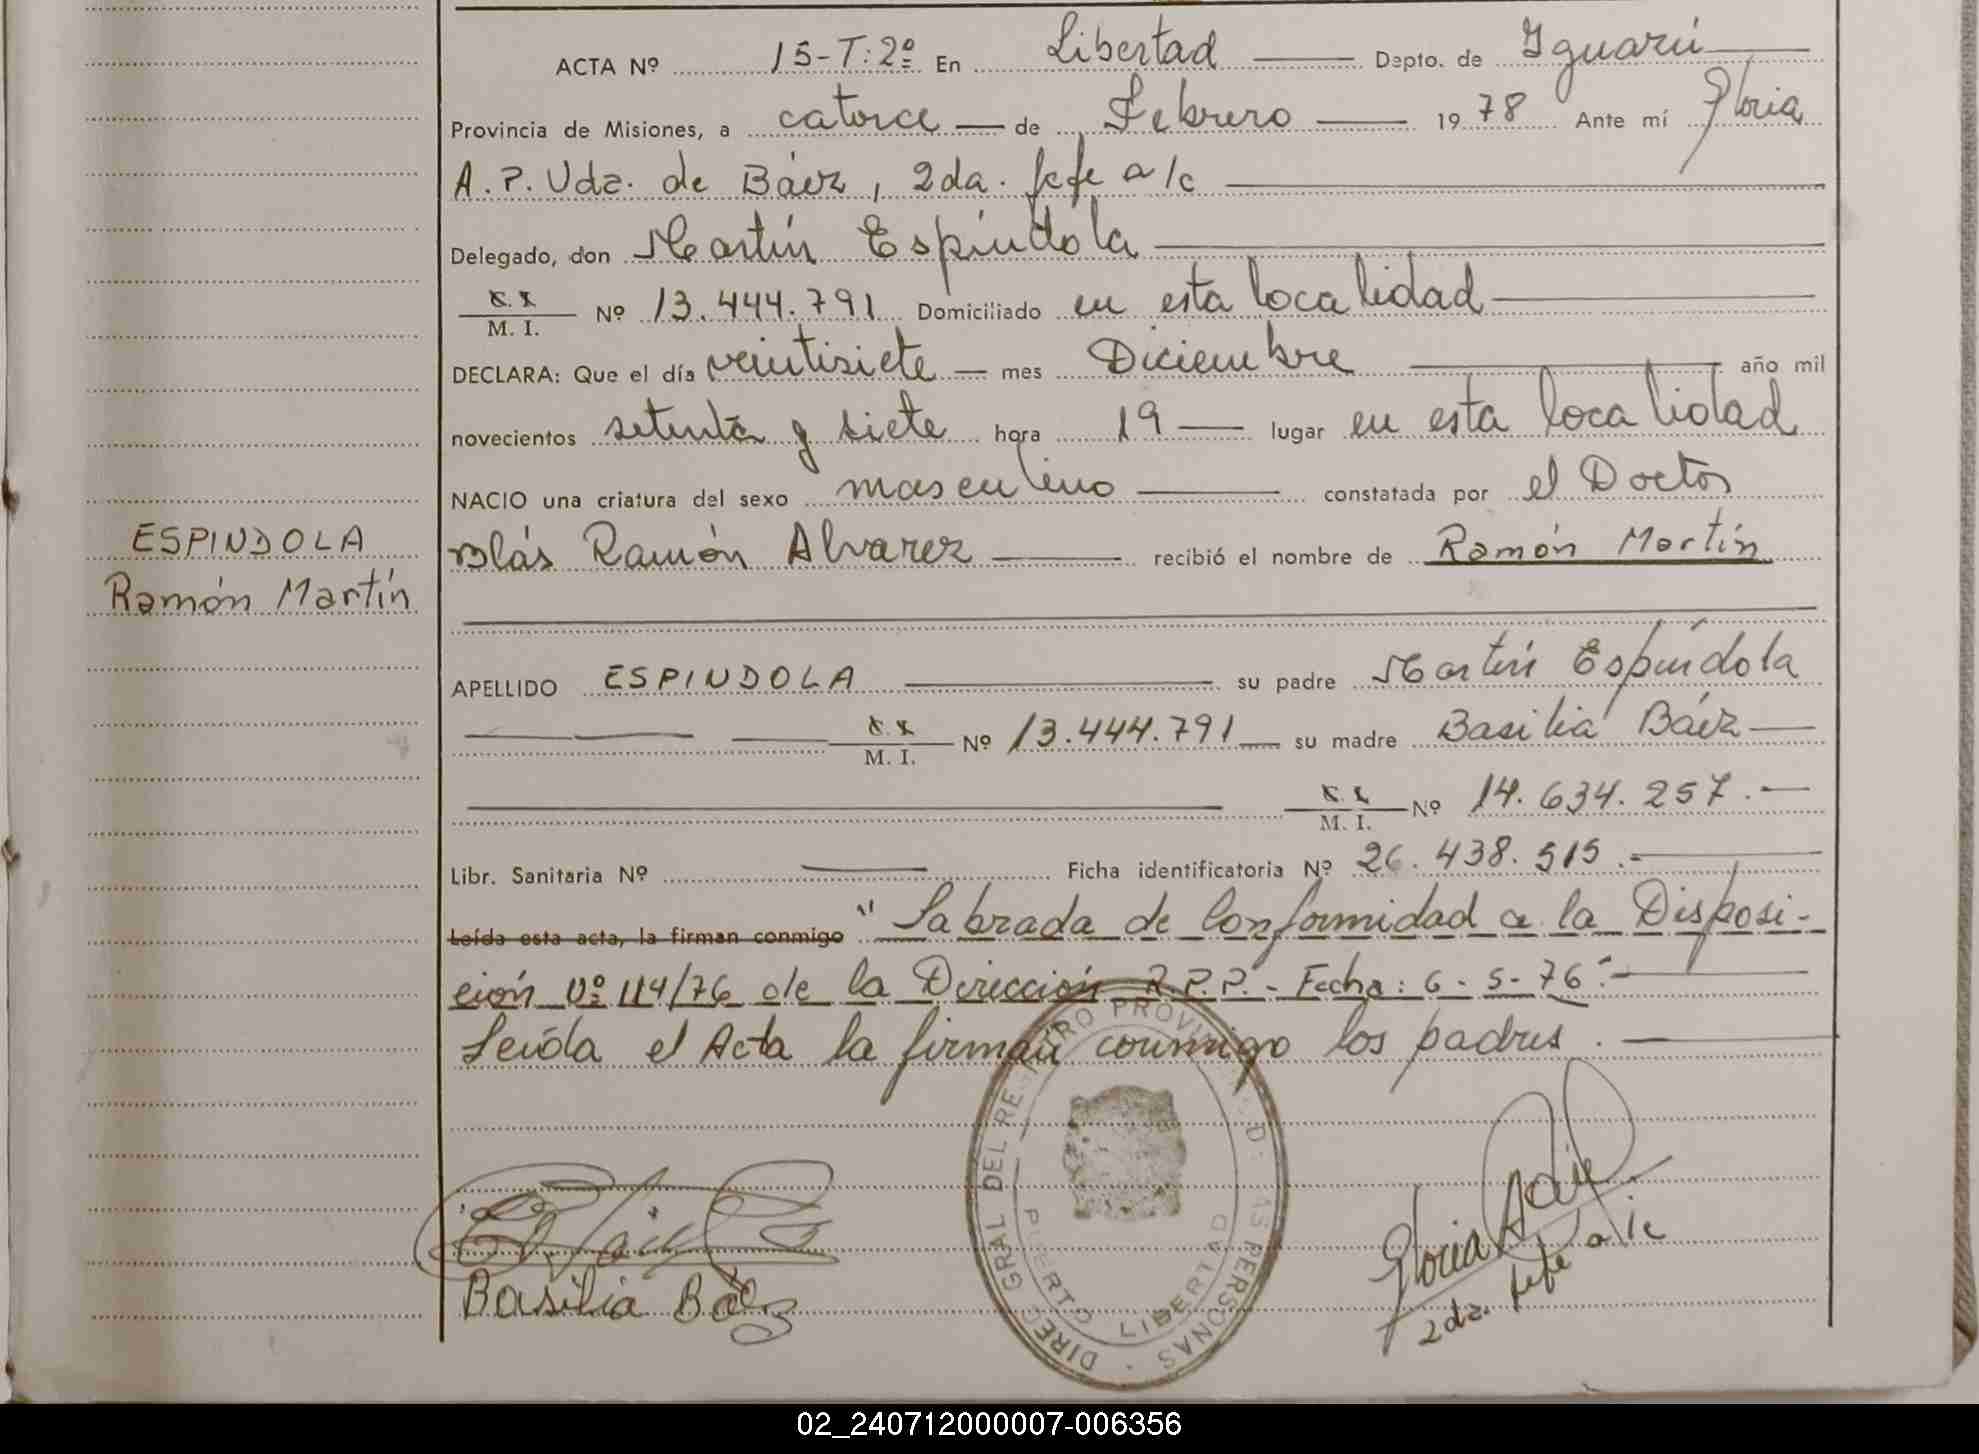 ACTA Nº 15-T:2º En Libertad Depto. de Iguazú
Provincia de Misiones, a catorce de Febrero 1978 Ante mí Gloria
A. P. Vda. de Báez, 2da. Jefe a/c
Delegado, don Martín Espíndola
M. I. Nº 13.444.791 Domiciliado en esta localidad
DECLARA: Que el día veintisiete mes Diciembre año mil
novecientos setenta y siete hora 19 lugar en esta localidad
NACIO una criatura del sexo masculino constatada por el Doctor
Blás Ramón Alvarez recibió el nombre de Ramón Martín
ESPINDOLA
Ramón Martín
APELLIDO ESPINDOLA su padre Martín Espíndola
M. I. Nº 13.444.791 su madre Basilia Báez
M. I. Nº 14.634.257.-
Libr. Sanitaria Nº Ficha identificatoria Nº 26.438.515.-
Leída esta acta, la firman conmigo "Labrada de Conformidad a la Disposi-
ción Nº 114/76 de la Dirección R.P.P.- Fecha: 6-5-76".-
Leída el Acta la firman conmigo los padres.
DIREC. GRAL DEL REGISTRO PROVINC. D. LAS PERSONAS
PUERTO LIBERTAD
Basilia Báez
Gloria
2da. Jefe a/c
02_240712000007-006356